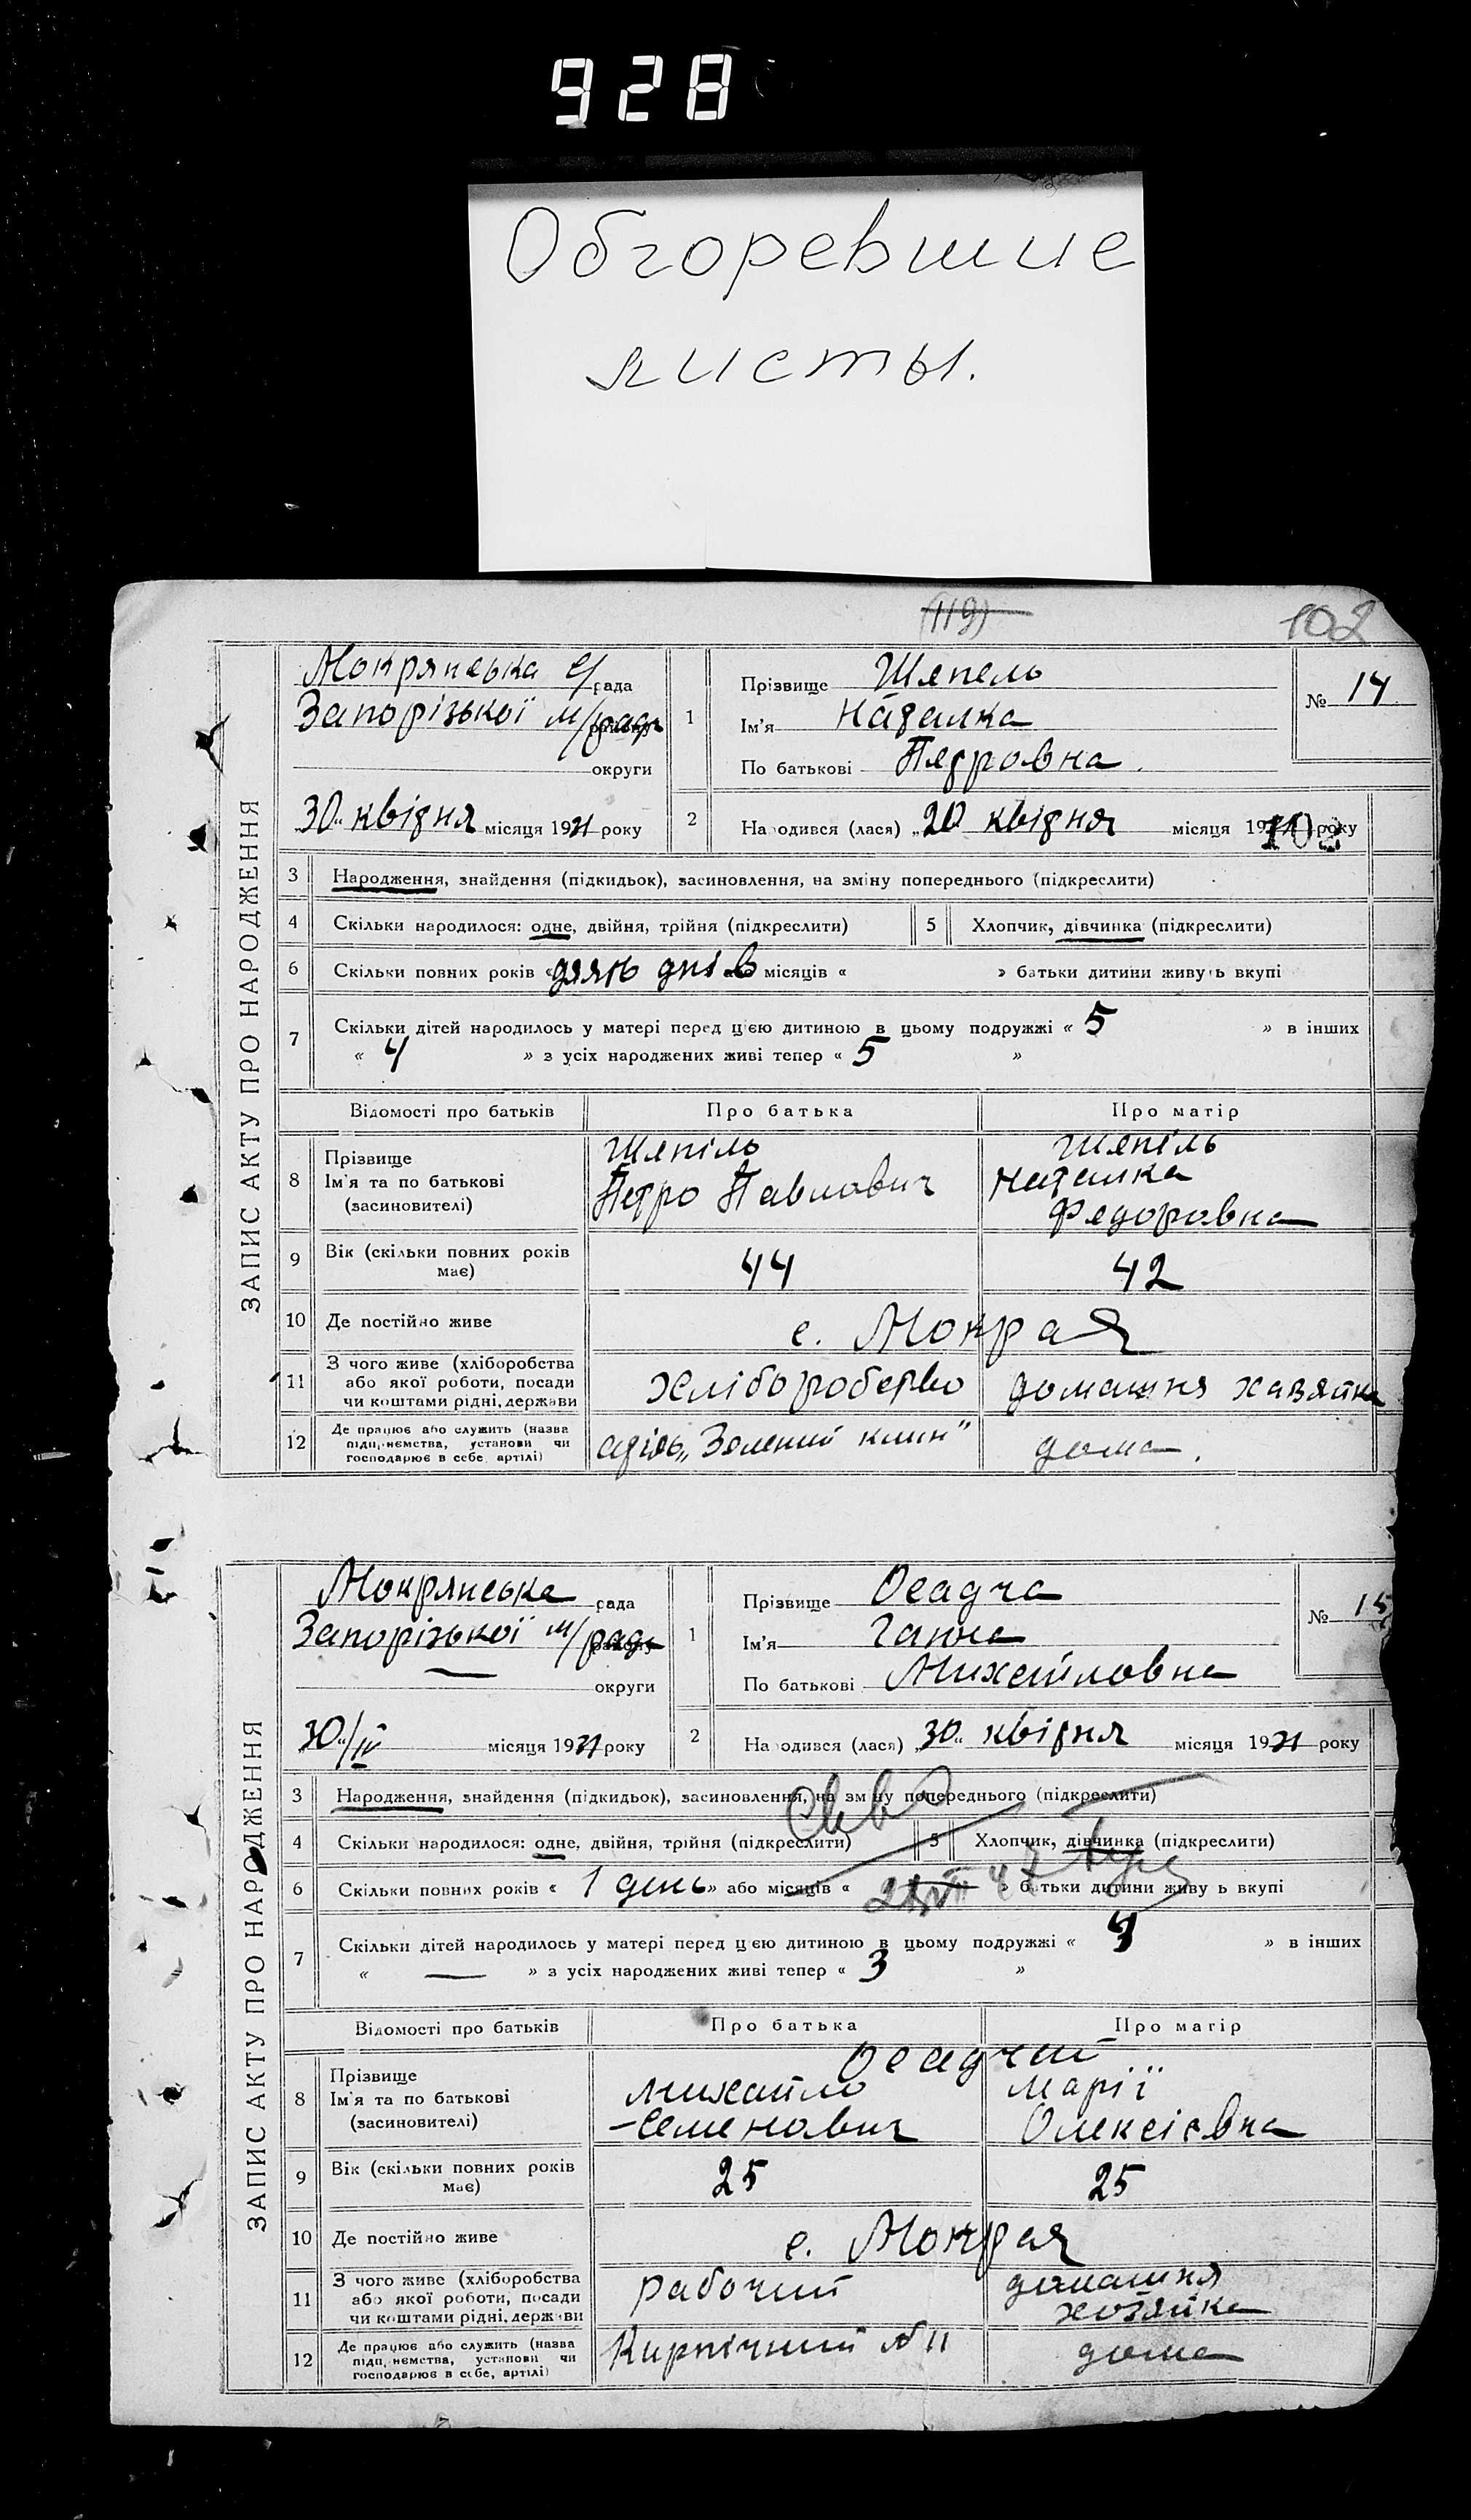 928
Обгоревшие
листы.
(119)
102
ЗАПИС АКТУ ПРО НАРОДЖЕННЯ
Мокрянська с/рада
Запорізької м/ради
округи
„30„ квітня місяця 1931 року
1
Прізвище Шепель
Ім'я Наталка
По батькові Петровна.
№ 14
2
Народився (лася) „20 квітня місяця 19 року
102
3 Народження, знайдення (підкидьок), засиновлення, на зміну попереднього (підкреслити)
4 Скільки народилося: одне, двійня, трійня (підкреслити) 5 Хлопчик, дівчинка (підкреслити)
6 Скільки повних років « днів місяців « » батьки дитини живуть вкупі
7 Скільки дітей народилось у матері перед цією дитиною в цьому подружжі « 5 » в інших
« 4 » з усіх народжених живі тепер « 5 »
Відомості про батьків Про батька Про матір
8 Прізвище Шепіль Шепіль
Ім'я та по батькові Петро Павлович Наталка
(засиновителі) Федоровна
9 Вік (скільки повних років має) 44 42
10 Де постійно живе с. Мокрая
11 З чого живе (хліборобства
або якої роботи, посади хліборобство домашня хазяйка
чи коштами рідні, держави
12 Де працює або служить (назва
підприємства, установи чи артіль „Зелений клин" дома.
господарює в себе, артілі)
ЗАПИС АКТУ ПРО НАРОДЖЕННЯ
Мокрянська рада
Запорізької м/ради
округи
„30„/IV місяця 1931 року
1
Прізвище Осадча
Ім'я Ганна
По батькові Михайловна
№ 15
2
Народився (лася) „30„ квітня місяця 1931 року
3 Народження, знайдення (підкидьок), засиновлення, на зміну попереднього (підкреслити)
4 Скільки народилося: одне, двійня, трійня (підкреслити) 5 Хлопчик, дівчинка (підкреслити)
6 Скільки повних років « 1 день » або місяців « » батьки дитини живуть вкупі
7 Скільки дітей народилось у матері перед цією дитиною в цьому подружжі « » в інших
« — » з усіх народжених живі тепер « 3 »
Відомості про батьків Про батька Про матір
Осадчий
8 Прізвище
Ім'я та по батькові Михайло Марії
(засиновителі) Семенович Олексієвна
9 Вік (скільки повних років має) 25 25
10 Де постійно живе с. Мокрая
11 З чого живе (хліборобства
або якої роботи, посади рабочий домашня
чи коштами рідні, держави хозяйка
12 Де працює або служить (назва
підприємства, установи чи Кирпічний № 11 дома
господарює в себе, артілі)